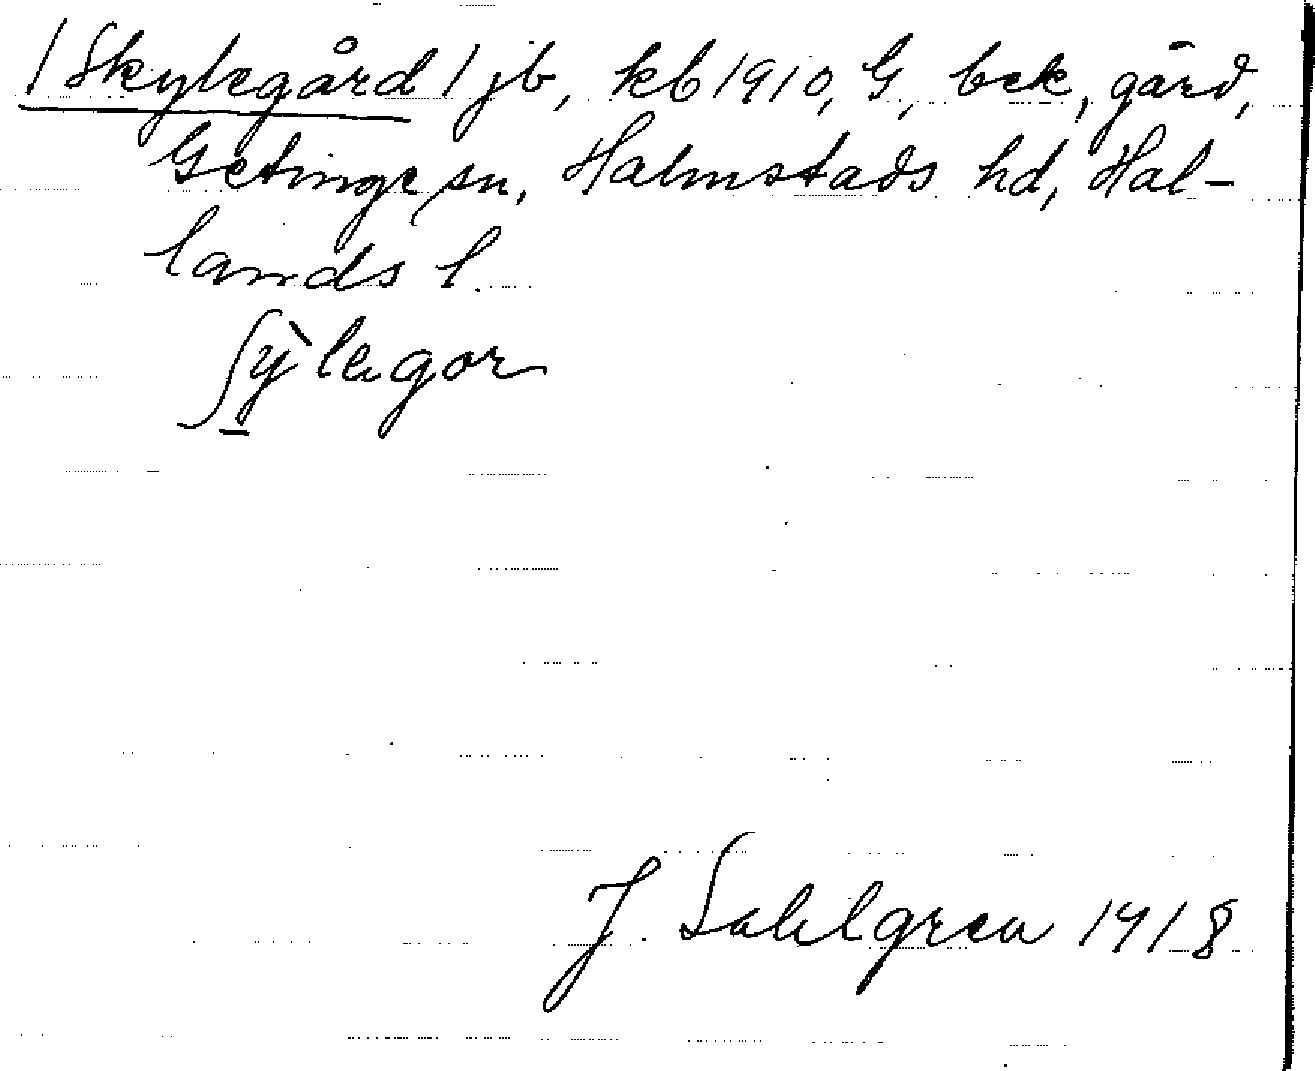 /Skylegård/ jb, kb 1910, G, bek, gård,
Getinge sn, Halmstads hd, Hal-
lands l.
ʃỳlagor
J. Sahlgren 1918